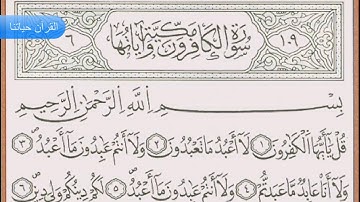 القرآن حياتنا
١٠٩ سُورَةُ الْكَافِرُونَ مَكِّيَّة وَآيَاتُهَا ٦
بِسْمِ اللَّهِ الرَّحْمَٰنِ الرَّحِيمِ
قُلْ يَا أَيُّهَا الْكَافِرُونَ ١ لَا أَعْبُدُ مَا تَعْبُدُونَ ٢ وَلَا أَنتُمْ عَابِدُونَ مَا أَعْبُدُ ٣
وَلَا أَنَا عَابِدٌ مَّا عَبَدتُّمْ ٤ وَلَا أَنتُمْ عَابِدُونَ مَا أَعْبُدُ ٥ لَكُمْ دِينُكُمْ وَلِيَ دِينِ ٦